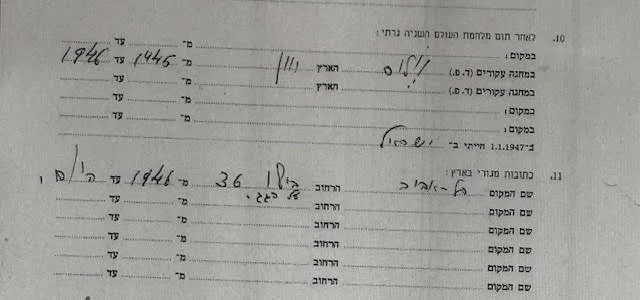 10. לאחר תום מלחמת העולם השניה גרתי:
במקום: מ־ עד
במחנה עקורים (ד.פ.) הארץ יוון מ־ 1945 עד 1946
במחנה עקורים (ד.פ.) הארץ מ־ עד
במקום: מ־ עד
במקום: מ־ עד
ב־1.1.1947 חייתי ב־ ישראל
11. כתובות מגורי בארץ:
שם המקום תל-אביב הרחוב בילו 36 מ־ 1946 עד היום
על הגג
שם המקום הרחוב מ־ עד
שם המקום הרחוב מ־ עד
שם המקום הרחוב מ־ עד
שם המקום הרחוב מ־ עד